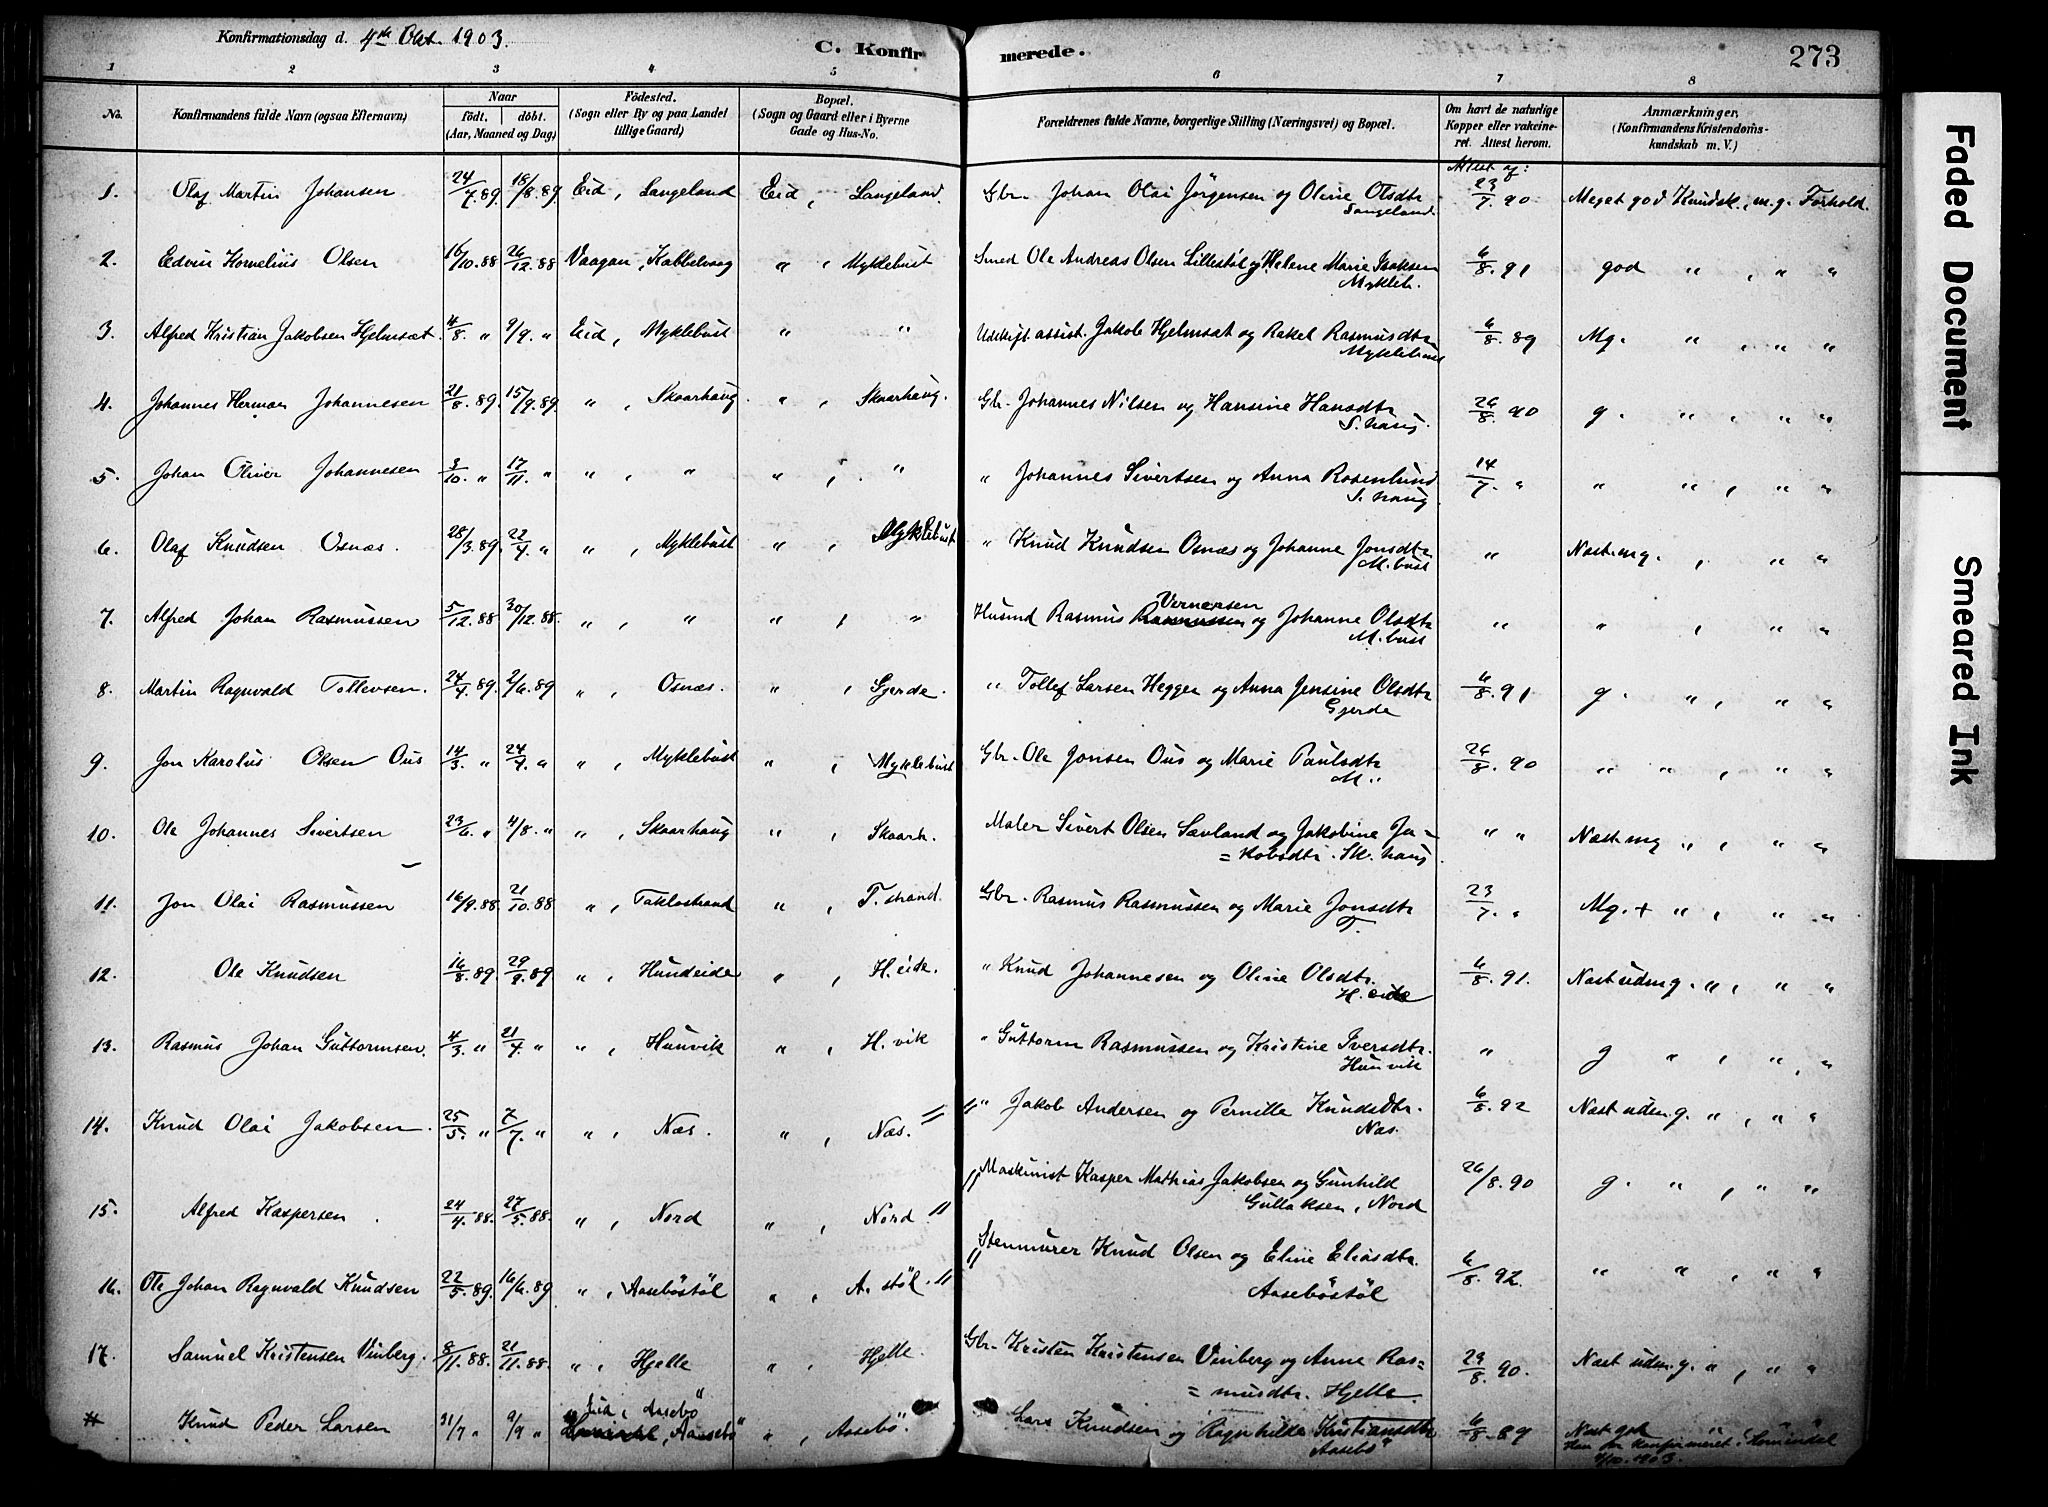 Konfirmationsdag d. 4de Okt. 1903.
C. Konfirmerede.
273
1 2 3 4 5 6 7 8
No. Konfirmandens fulde Navn (ogsaa Efternavn) Naar födt. döbt. (Aar, Maaned og Dag) Födested. (Sogn eller By og paa Landet tillige Gaard) Bopæl. (Sogn og Gaard eller i Byerne Gade og Hus-No. Forældrenes fulde Navne, borgerlige Stilling (Næringsvei) og Bopæl. Om havt de naturlige Kopper eller vakcineret. Attest herom. Anmærkninger. (Konfirmandens Kristendomskundskab m. V.)
Attest af:
1. Olaf Martin Johansen 24/7.89. 18/8.89 Eid, Langeland Eid, Langeland. Gbr. Johan Olai Jörgensen og Oline Olsdtr Langeland. 23/7.90 Meget god Kundsk., m.g. Forhold.
2. Edvin Kornelius Olsen 16/10.88 26/12.88 Vaagan, Kabbelvaag " , Myklebust Smed Ole Andreas Olsen Lillestøl og Helene Marie Isaksen Mykleb. 6/8.91 god " , " "
3. Alfred Kristian Jakobsen Hjelmsæt. 4/8 " 9/9. " Eid, Myklebust " " Udskift. assist. Jakob Hjelmsæt og Rakel Rasmusdtr Myklebust 6/8.89 Mg. " , " "
4. Johannes Herman Johannesen 21/8.89. 15/9.89 " , Skaarhaug " , Skaarhaug. Gbr. Johannes Nilsen og Hansine Hansdtr S.haug. 26/8.90 g. " , " "
5. Johan Oliver Johannesen 3/10. " 17/11. " " , " " , " " Johannes Sivertsen og Anna Rosenlund S.haug 14/7. " " " , " "
6. Olaf Knudsen Osnæs. 28/3.89 22/4. " " , Myklebust " , Myklebust " Knud Knudsen Osnæs og Johanne Jonsdtr M.bust " Næst. mg. , " "
7. Alfred Johan Rasmussen 5/12.88 30/12.88. " , " " , " Husmd Rasmus Rasmussen Vernersen og Johanne Olsdtr M.bust " " , " "
8. Martin Ragnvald Tollevsen. 24/4.89. 2/6.89 " , Osnæs. " , Gjerde. " Tollef Larsen Heggen og Anna Jensine Olsdtr Gjerde 6/8.91 g. " , " "
9. Jon Karolus Olsen Ous 14/3. " 24/4. " " , Myklebust " , Myklebust Gbr. Ole Jonsen Ous og Marie Paulsdtr M. " 26/8.90 " " , " "
10. Ole Johannes Sivertsen 23/6. " 4/8. " " , Skaarhaug " , Skaarh. Maler Sivert Olsen Sævland og Jakobine Ja=
=kobsdtr. Sk.haug. " " Næst. mg " , " "
11. Jon Olai Rasmussen 16/9.88. 21/10.88 " , Taklostrand " , T.strand. Gbr. Rasmus Rasmussen og Marie Jonsdtr T. 23/7. " Mg. + " , " "
12. Ole Knudsen 16/8.89. 29/9.89 " , Hundeide " , H.eide. " Knud Johannesen og Oline Olsdtr. H.eide 6/8.91. Næst udm g. " , " "
13. Rasmus Johan Guttormsen. 4/3. " 21/4. " " , Hunvik " , H.vik " Guttorm Rasmussen og Kristine Iversdtr. Hunvik " g " , " "
14. Knud Olai Jakobsen. 25/5. " 7/7. " " , Næs. " , Næs. " Jakob Andersen og Pernille Knudsdtr. Næs. 6/8.92 Næst udm g. " , " "
15. Alfred Kaspersen 24/4.88. 27/5.88. " , Nord " , Nord Maskinist Kasper Mathias Jakobsen og Gunhild Gullaksen, Nord 26/8.90 g. " , " "
16. Ole Johan Ragnvald Knudsen 22/5.89. 16/6.89 " , Aasebøstøl " , A.støl. Stenmurer Knud Olsen og Eline Eliasdtr. Aasebøstøl 6/8.92. " " , " "
17. Samuel Kristensen Vinberg. 8/11.88. 21/11.88. " , Hjelle " , Hjelle. Gbr. Kristen Kristensen Vinberg og Anne Ras=
=musdtr. Hjelle 29/8.90. Næst udm. g. " , " "
Knud Peder Larsen 31/7 " 9/9 " Eid, Aasebø " , Aasebø. Lars Knudsen og Ragnhilde Kristiansdtr Aasebø 6/8.89 Næst god
Han er konfirmeret i Hornindal /10.1903.
Faded Document
Smeared Ink